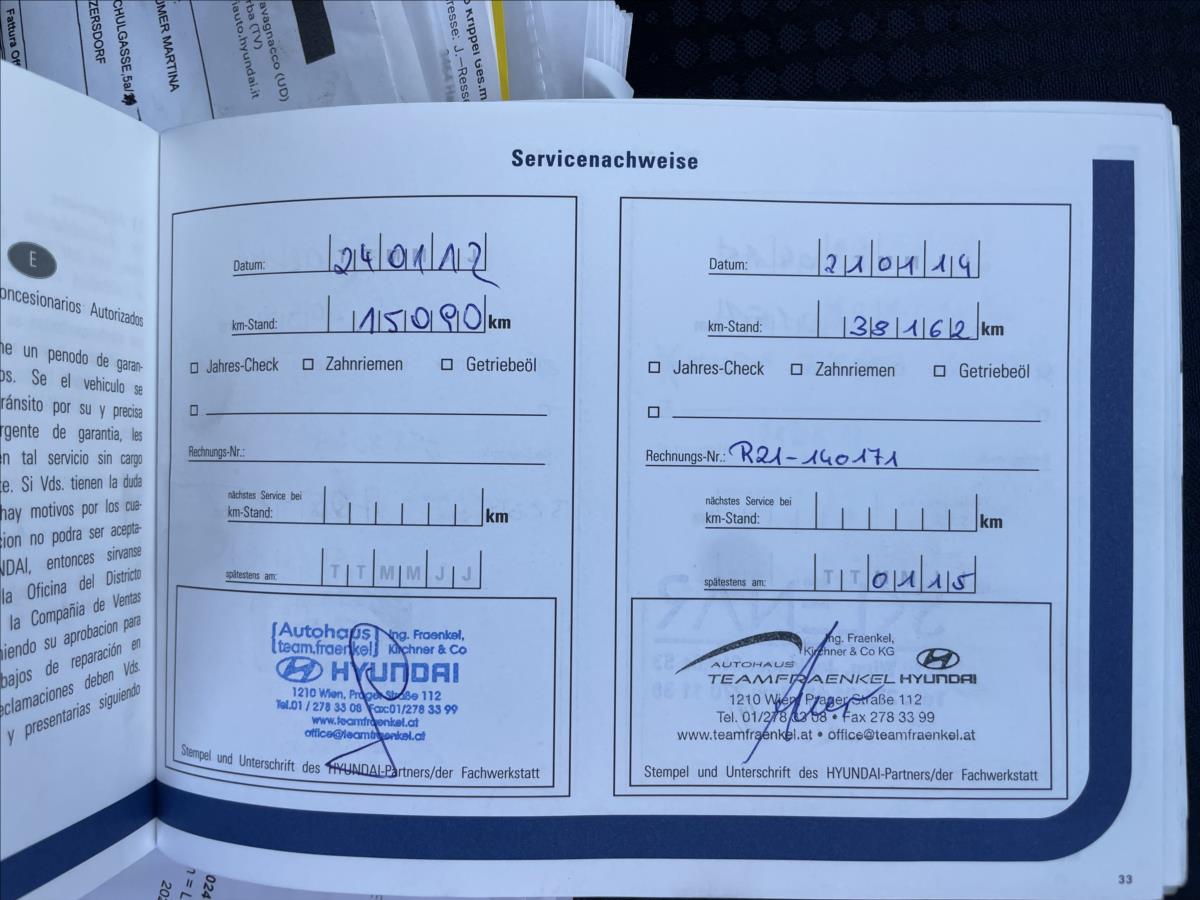 Fattura
ZERSDORF
CHULGASSE,5a/
UMER MARTINA
avagnacco (UD)
rba (TV)
iauto.hyundai.it
o Krippel Ges.m
resse: J.-Resse
E
oncesionarios Autorizados
ne un penodo de garan-
os. Se el vehiculo se
ránsito por su y precisa
rgente de garantia, les
en tal servicio sin cargo
te. Si Vds. tienen la duda
hay motivos por los cua-
cion no podra ser acepta-
NDAI, entonces sirvanse
la Oficina del Districto
la Compañia de Ventas
niendo su aprobacion para
bajos de reparación en
eclamaciones deben Vds.
y presentarias siguiendo
Servicenachweise
Datum: 24 01 12
km-Stand: 15090 km
Jahres-Check Zahnriemen Getriebeöl
Rechnungs-Nr.:
nächstes Service bei
km-Stand: km
spätestens am: T T M M J J
[Autohaus] Ing. Fraenkel,
[team.fraenkel] Kirchner & Co
HYUNDAI
1210 Wien, Prager Straße 112
Tel.01 / 278 33 08 Fax:01/278 33 99
www.teamfraenkel.at
office@teamfraenkel.at
Stempel und Unterschrift des HYUNDAI-Partners/der Fachwerkstatt
Datum: 21 01 14
km-Stand: 38162 km
Jahres-Check Zahnriemen Getriebeöl
Rechnungs-Nr.: R21-140171
nächstes Service bei
km-Stand: km
spätestens am: T T 01 15
Ing. Fraenkel,
Kirchner & Co KG
AUTOHAUS
TEAMFRAENKEL HYUNDAI
1210 Wien, Prager Straße 112
Tel. 01/278 33 08 • Fax 278 33 99
www.teamfraenkel.at • office@teamfraenkel.at
Stempel und Unterschrift des HYUNDAI-Partners/der Fachwerkstatt
33
024